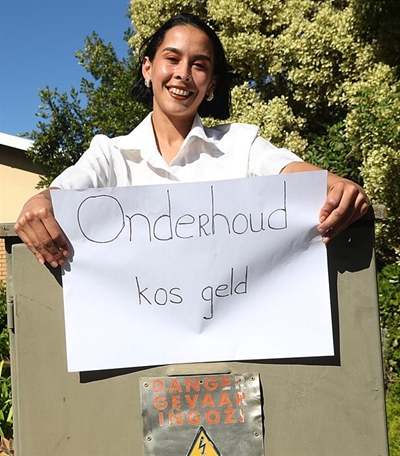 Onderhoud
kos geld
DANGER
GEVAAR
INGOZI